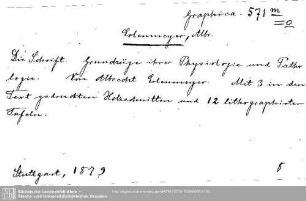 Graphica. 571 m
=0
Erlenmeyer, Albr.
Die Schrift. Grundzüge ihrer Physiologie und Patho-
logie. Von Albrecht Erlenmeyer. Mit 3 in den
Text gedruckten Holzschnitten und 12 lithographirten
Tafeln.
Stuttgart, 1879
8
Sächsische Landesbibliothek -
Staats- und Universitätsbibliothek Dresden